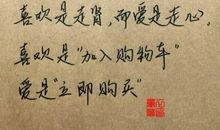 喜欢是走肾，而爱是走心。
喜欢是“加入购物车”
爱是“立即购买”